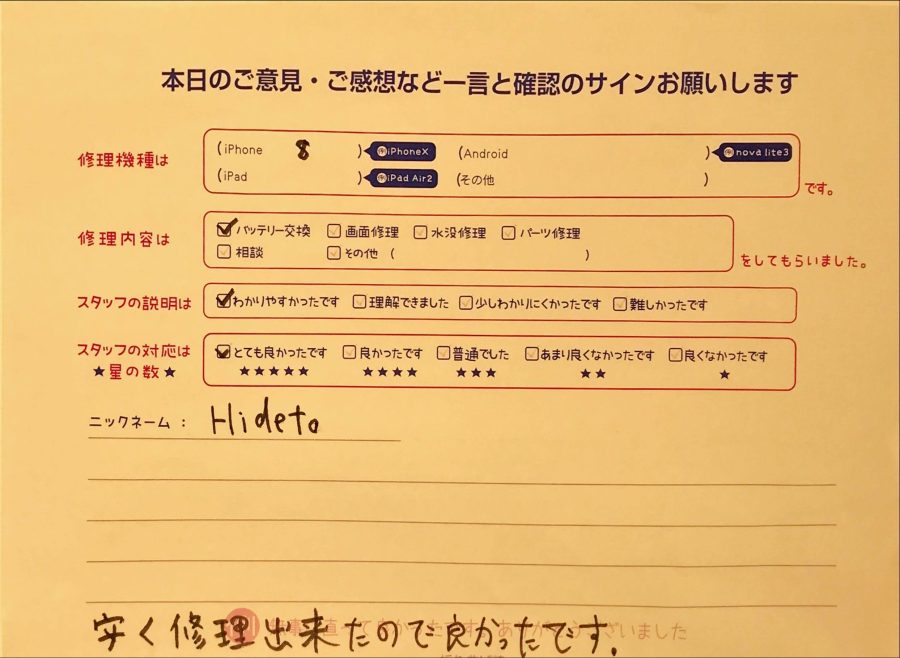 本日のご意見・ご感想など一言と確認のサインお願いします
修理機種は
(iPhone 8 ) iPhoneX (Android ) nova lite3
(iPad ) iPad Air2 (その他 )
です。
修理内容は
バッテリー交換 画面修理 水没修理 パーツ修理
相談 その他 ( )
をしてもらいました。
スタッフの説明は わかりやすかったです 理解できました 少しわかりにくかったです 難しかったです
スタッフの対応は とても良かったです 良かったです 普通でした あまり良くなかったです 良くなかったです
★星の数★ ★★★★★ ★★★★ ★★★ ★★ ★
ニックネーム : Hideto
安く修理出来たので良かったです.